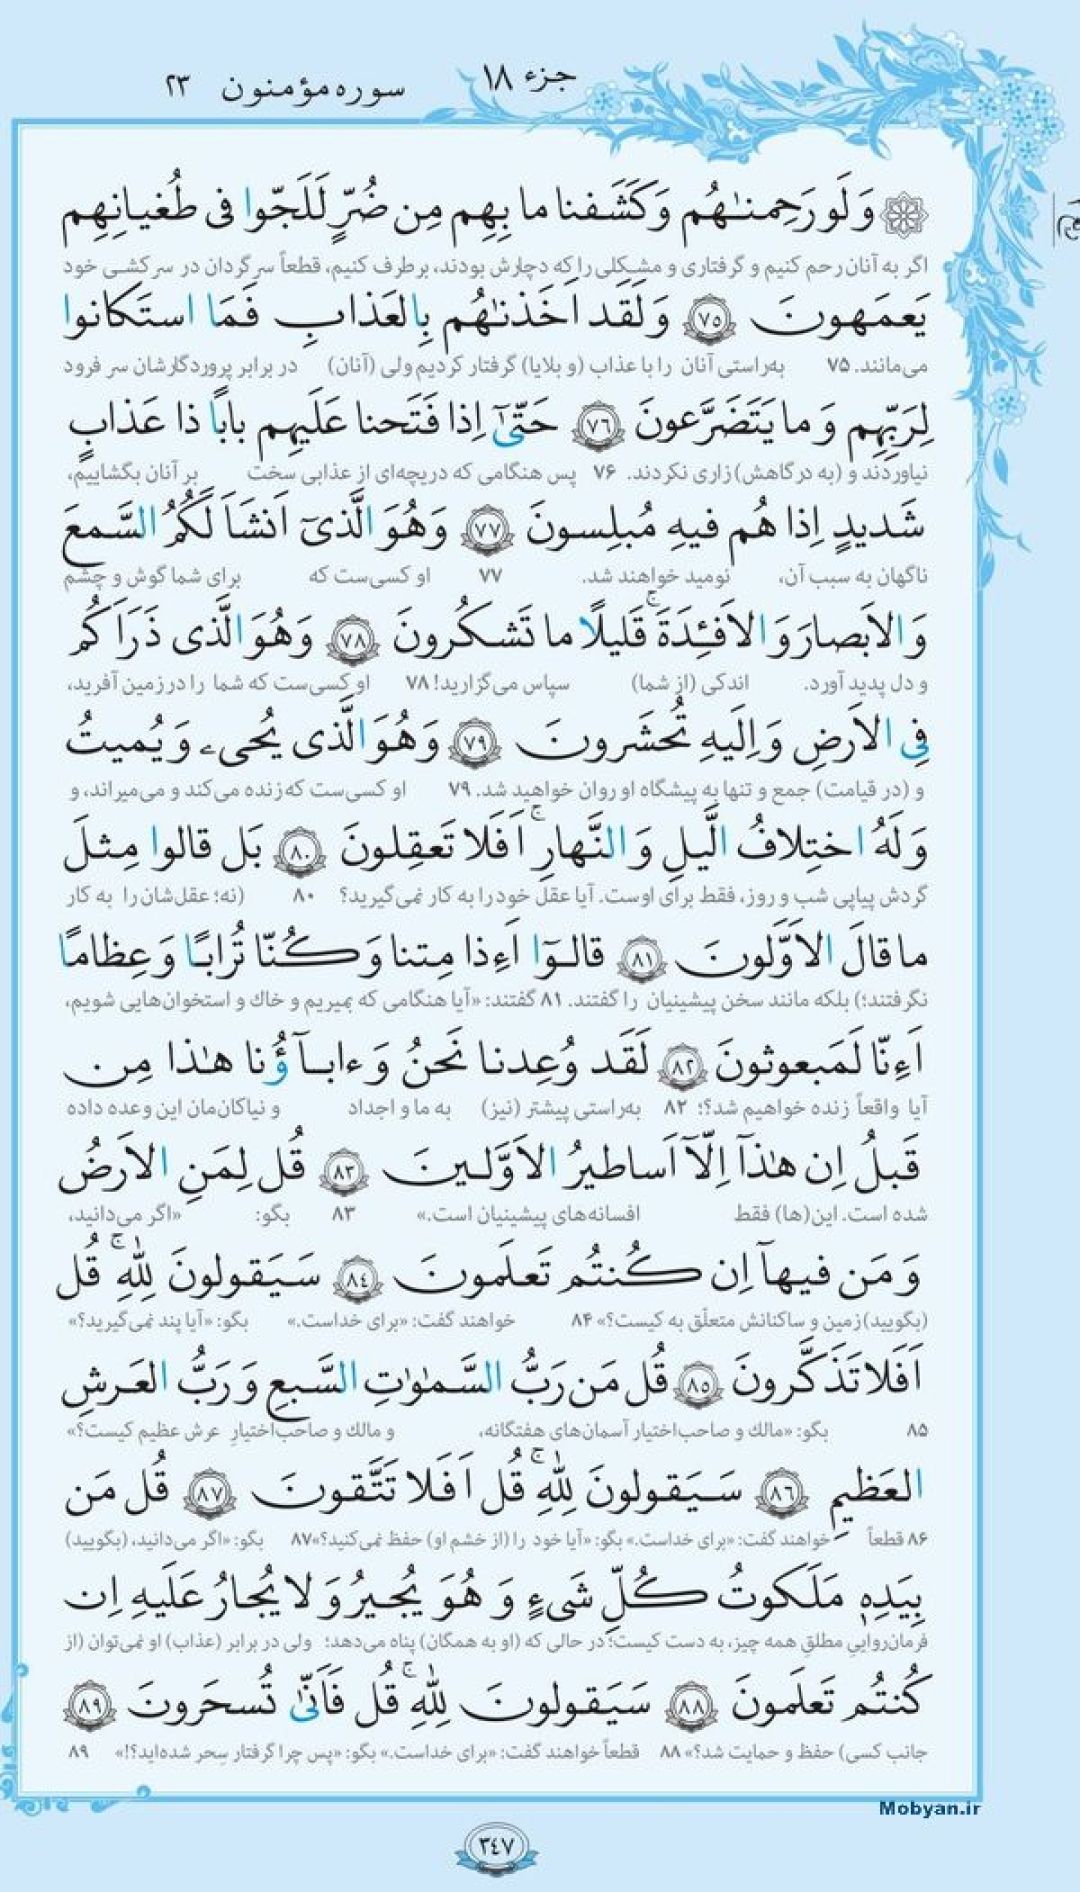 جزء ۱۸
سوره مؤمنون ۲۳
وَلَو رَحِمنٰهُم وَكَشَفنا ما بِهِم مِن ضُرٍّ لَلَجّوا فى طُغيانِهِم
اگر به آنان رحم کنیم و گرفتاری و مشکلی را که دچارش بودند، برطرف کنیم، قطعاً سرگردان در سرکشی خود
يَعمَهونَ ٧٥ وَلَقَد اَخَذنٰهُم بِالعَذابِ فَمَا استَكانوا
می‌مانند. ۷۵ به‌راستی آنان را با عذاب (و بلایا) گرفتار کردیم ولی (آنان) در برابر پروردگارشان سر فرود
لِرَبِّهِم وَ ما يَتَضَرَّعونَ ٧٦ حَتّىٰٓ اِذا فَتَحنا عَلَيهِم بابًا ذا عَذابٍ
نیاوردند و (به درگاهش) زاری نکردند. ۷۶ پس هنگامی که دریچه‌ای از عذابی سخت بر آنان بگشاییم،
شَديدٍ اِذا هُم فيهِ مُبلِسونَ ٧٧ وَهُوَ الَّذىٓ اَنشَاَ لَكُمُ السَّمعَ
ناگهان به سبب آن، نومید خواهند شد. ۷۷ او کسی‌ست که برای شما گوش و چشم
وَ الاَبصارَ وَ الاَفـِٔدَةَ ۚ قَليلًا ما تَشكُرونَ ٧٨ وَهُوَ الَّذى ذَرَاَكُم
و دل پدید آورد. اندکی (از شما) سپاس می‌گزارید! ۷۸ او کسی‌ست که شما را در زمین آفرید،
فِى الاَرضِ وَ اِلَيهِ تُحشَرونَ ٧٩ وَ هُوَ الَّذى يُحيى‌ء وَ يُميتُ
و (در قیامت) جمع و تنها به پیشگاه او روان خواهید شد. ۷۹ او کسی‌ست که زنده می‌کند و می‌میراند، و
وَ لَهُ اختِلافُ الَّيلِ وَ النَّهارِ ۚ اَفَلا تَعقِلونَ ٨٠ بَل قالوا مِثلَ
گردش پیاپی شب و روز، فقط برای اوست. آیا عقل خود را به کار نمی‌گیرید؟ ۸۰ (نه؛ عقل‌شان را به کار
ما قالَ الاَوَّلونَ ٨١ قالوٓا اَءِذا مِتنا وَ كُنّا تُرابًا وَ عِظامًا
نگرفتند؛) بلکه مانند سخن پیشینیان را گفتند. ۸۱ گفتند: «آیا هنگامی که بمیریم و خاك و استخوان‌هایی شویم،
اَءِنّا لَمَبعوثونَ ٨٢ لَقَد وُعِدنا نَحنُ وَ ءابآؤُنا هٰذا مِن
آیا واقعاً زنده خواهیم شد؟؛ ۸۲ به‌راستی پیشتر (نیز) به ما و اجداد و نیاکان‌مان این وعده داده
قَبلُ اِن هٰذآ اِلّآ اَساطيرُ الاَوَّلينَ ٨٣ قُل لِمَنِ الاَرضُ
شده است. این(ها) فقط افسانه‌های پیشینیان است.» ۸۳ بگو: «اگر می‌دانید،
وَ مَن فيهآ اِن كُنتُم تَعلَمونَ ٨٤ سَيَقولونَ لِلّٰهِ ۚ قُل
(بگویید) زمین و ساکنانش متعلّق به کیست؟» ۸۴ خواهند گفت: «برای خداست.» بگو: «آیا پند نمی‌گیرید؟»
اَفَلا تَذَكَّرونَ ٨٥ قُل مَن رَبُّ السَّمٰوٰتِ السَّبعِ وَ رَبُّ العَرشِ
۸۵ بگو: «مالك و صاحب‌اختیار آسمان‌های هفتگانه، و مالك و صاحب‌اختیارِ عرش عظیم کیست؟»
العَظيمِ ٨٦ سَيَقولونَ لِلّٰهِ ۚ قُل اَفَلا تَتَّقونَ ٨٧ قُل مَن
۸۶ قطعاً خواهند گفت: «برای خداست.» بگو: «آیا خود را (از خشم او) حفظ نمی‌کنید؟»۸۷ بگو: «اگر می‌دانید، (بگویید)
بِيَدِهٖ مَلَكوتُ كُلِّ شَىءٍ وَ هُوَ يُجيرُ وَ لا يُجارُ عَلَيهِ اِن
فرمان‌رواییِ مطلقِ همه چیز، به دست کیست؛ در حالی که (او به همگان) پناه می‌دهد؛ ولی در برابر (عذاب) او نمی‌توان (از
كُنتُم تَعلَمونَ ٨٨ سَيَقولونَ لِلّٰهِ ۚ قُل فَاَنّىٰ تُسحَرونَ ٨٩
جانب کسی) حفظ و حمایت شد؟» ۸۸ قطعاً خواهند گفت: «برای خداست.» بگو: «پس چرا گرفتار سِحر شده‌اید؟!» ۸۹
Mobyan.ir
۳٤۷